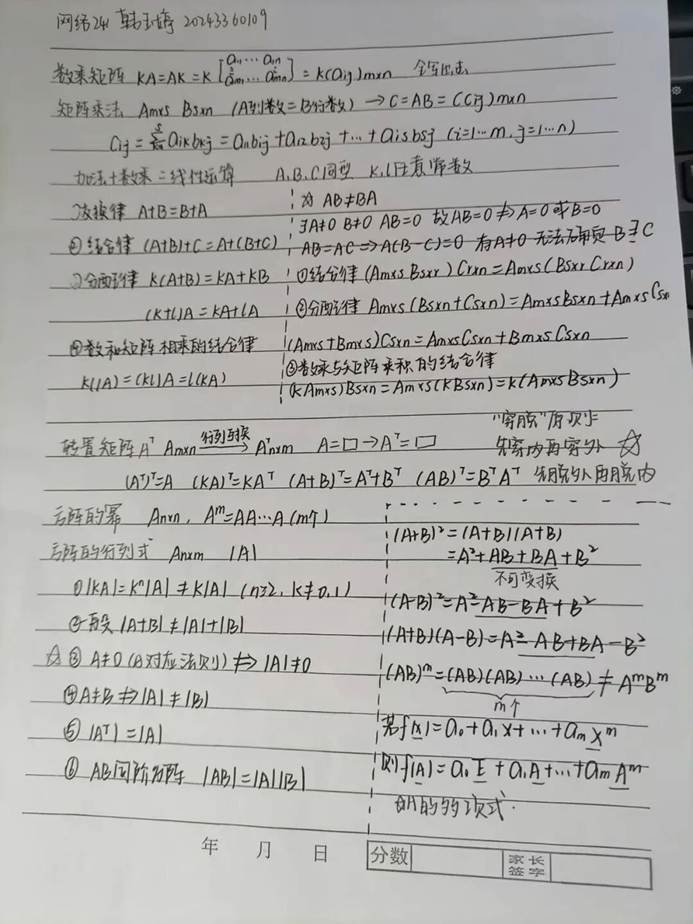 网络241 韩玉婷 20243360109
数乘矩阵 KA=AK=K[a₁₁…a₁ₙ ⋮ aₘ₁…aₘₙ]=K(aij)m×n 全写出去
矩阵乘法 Am×s Bs×n (A列数=B行数)→C=AB=(Cij)m×n
Cij=Σaikbkj=ai1b1j+ai2b2j+…+aisbsj (i=1…m, j=1…n)
加法+数乘=线性运算 A、B、C同型 K、l任意常数
交换律 A+B=B+A
①结合律 (A+B)+C=A+(B+C)
分配律 K(A+B)=KA+KB
(K+l)A=KA+lA
④数和矩阵相乘的结合律
K(lA)=(Kl)A=l(KA)
为 AB≠BA
∃A≠0 B≠0 AB=0 故AB=0⇏A=0或B=0
AB=AC⇒A(B-C)=0 有A≠0 无法 B C
①结合律(Am×s Bs×r)Cr×n=Am×s(Bs×r Cr×n)
②分配律 Am×s(Bs×n+Cs×n)=Am×sBs×n+Am×sCs×n
(Am×s+Bm×s)Cs×n=Am×sCs×n+Bm×sCs×n
③数乘与矩阵乘积的结合律
(KAm×s)Bs×n=Am×s(KBs×n)=K(Am×sBs×n)
"穿脱"原则
转置矩阵Aᵀ Am×n 行列互换→ Aᵀn×m A=□→Aᵀ=□ 先穿内再穿外 ☆
(Aᵀ)ᵀ=A (KA)ᵀ=KAᵀ (A+B)ᵀ=Aᵀ+Bᵀ (AB)ᵀ=BᵀAᵀ 先脱外再脱内
方阵的幂 An×n, Aᵐ=AA…A(m个)
方阵的行列式 An×m |A|
①|KA|=Kⁿ|A|≠K|A| (n≥2, K≠0,1)
②一般 |A+B|≠|A|+|B|
☆③ A≠0(A对应法则)⇏|A|≠0
④A≠B⇏|A|≠|B|
⑤|Aᵀ|=|A|
① AB同阶方阵 |AB|=|A||B|
(A+B)²=(A+B)(A+B)
=A²+AB+BA+B²
不可变换
(A-B)²=A²-AB-BA+B²
(A+B)(A-B)=A²-AB+BA-B²
(AB)ᵐ=(AB)(AB)…(AB)≠AᵐBᵐ
m个
若f(x)=a₀+a₁x+…+aₘxᵐ
则f(A)=a₀E+a₁A+…+aₘAᵐ
A的多项式.
年 月 日 分数 家长签字